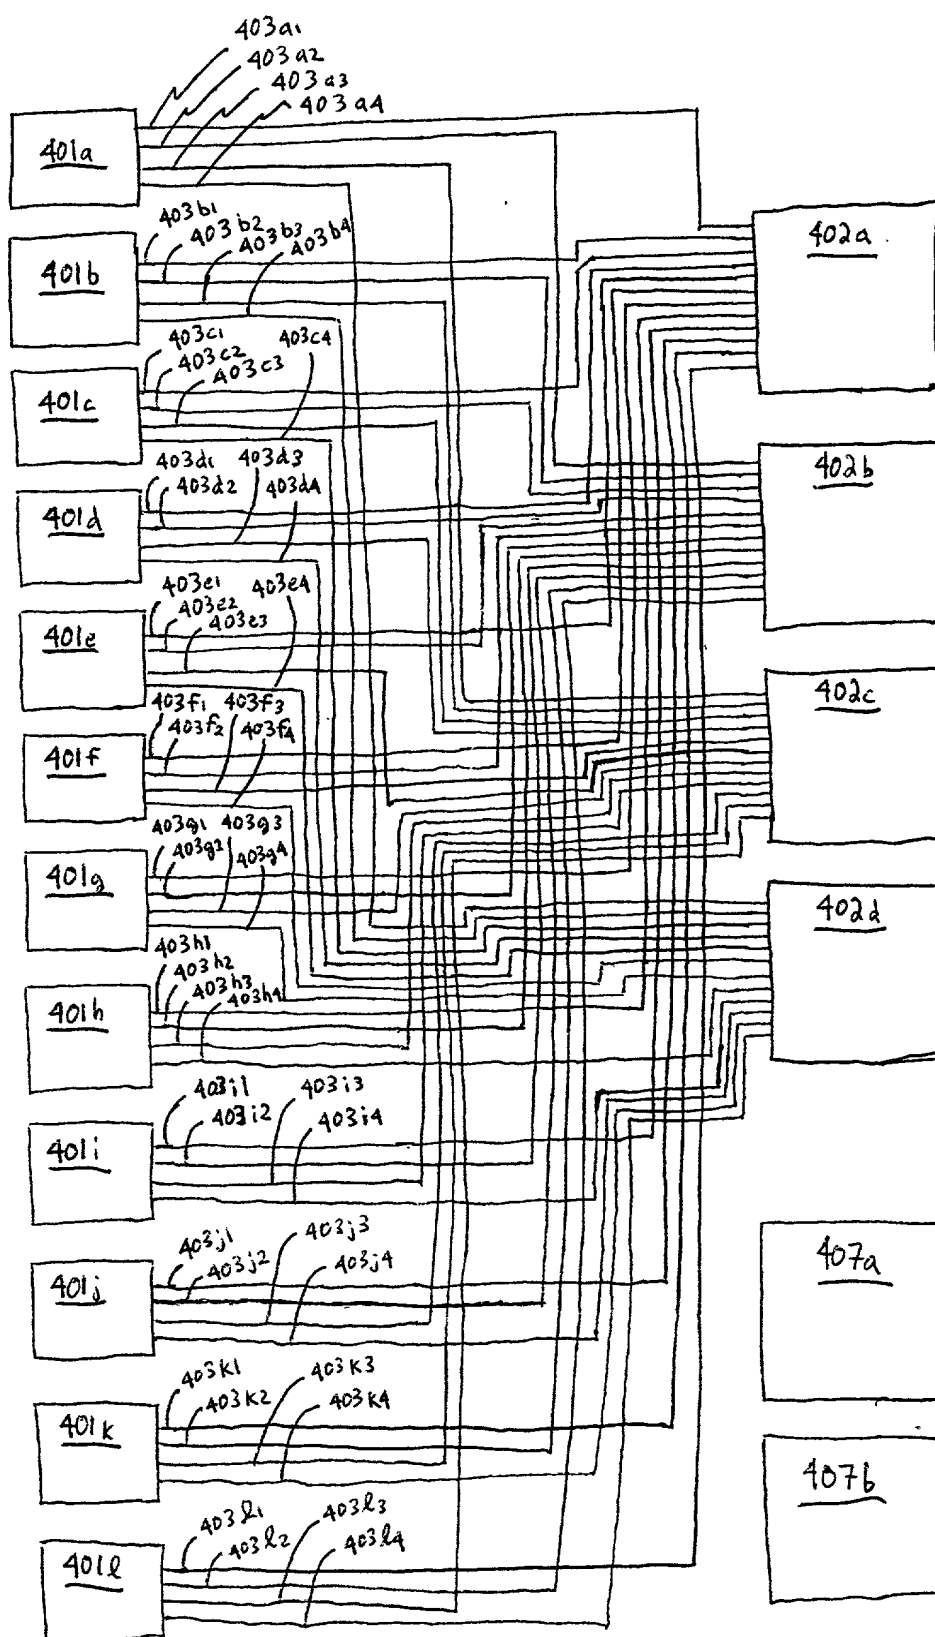 403a1
403a2
403a3
403a4
401a
403b1
403b2
403b3
403b4
402a
401b
403c1
403c2
403c3
403c4
401c
403d1
403d2
403d3
403d4
402b
401d
403e1
403e2
403e3
403e4
401e
403f1
403f2
403f3
403f4
402c
401f
403g1
403g2
403g3
403g4
401g
402d
403h1
403h2
403h3
403h4
401h
403i1
403i2
403i3
403i4
401i
403j1
403j2
403j3
403j4
401j
407a
403k1
403k2
403k3
403k4
401k
407b
403l1
403l2
403l3
403l4
401l